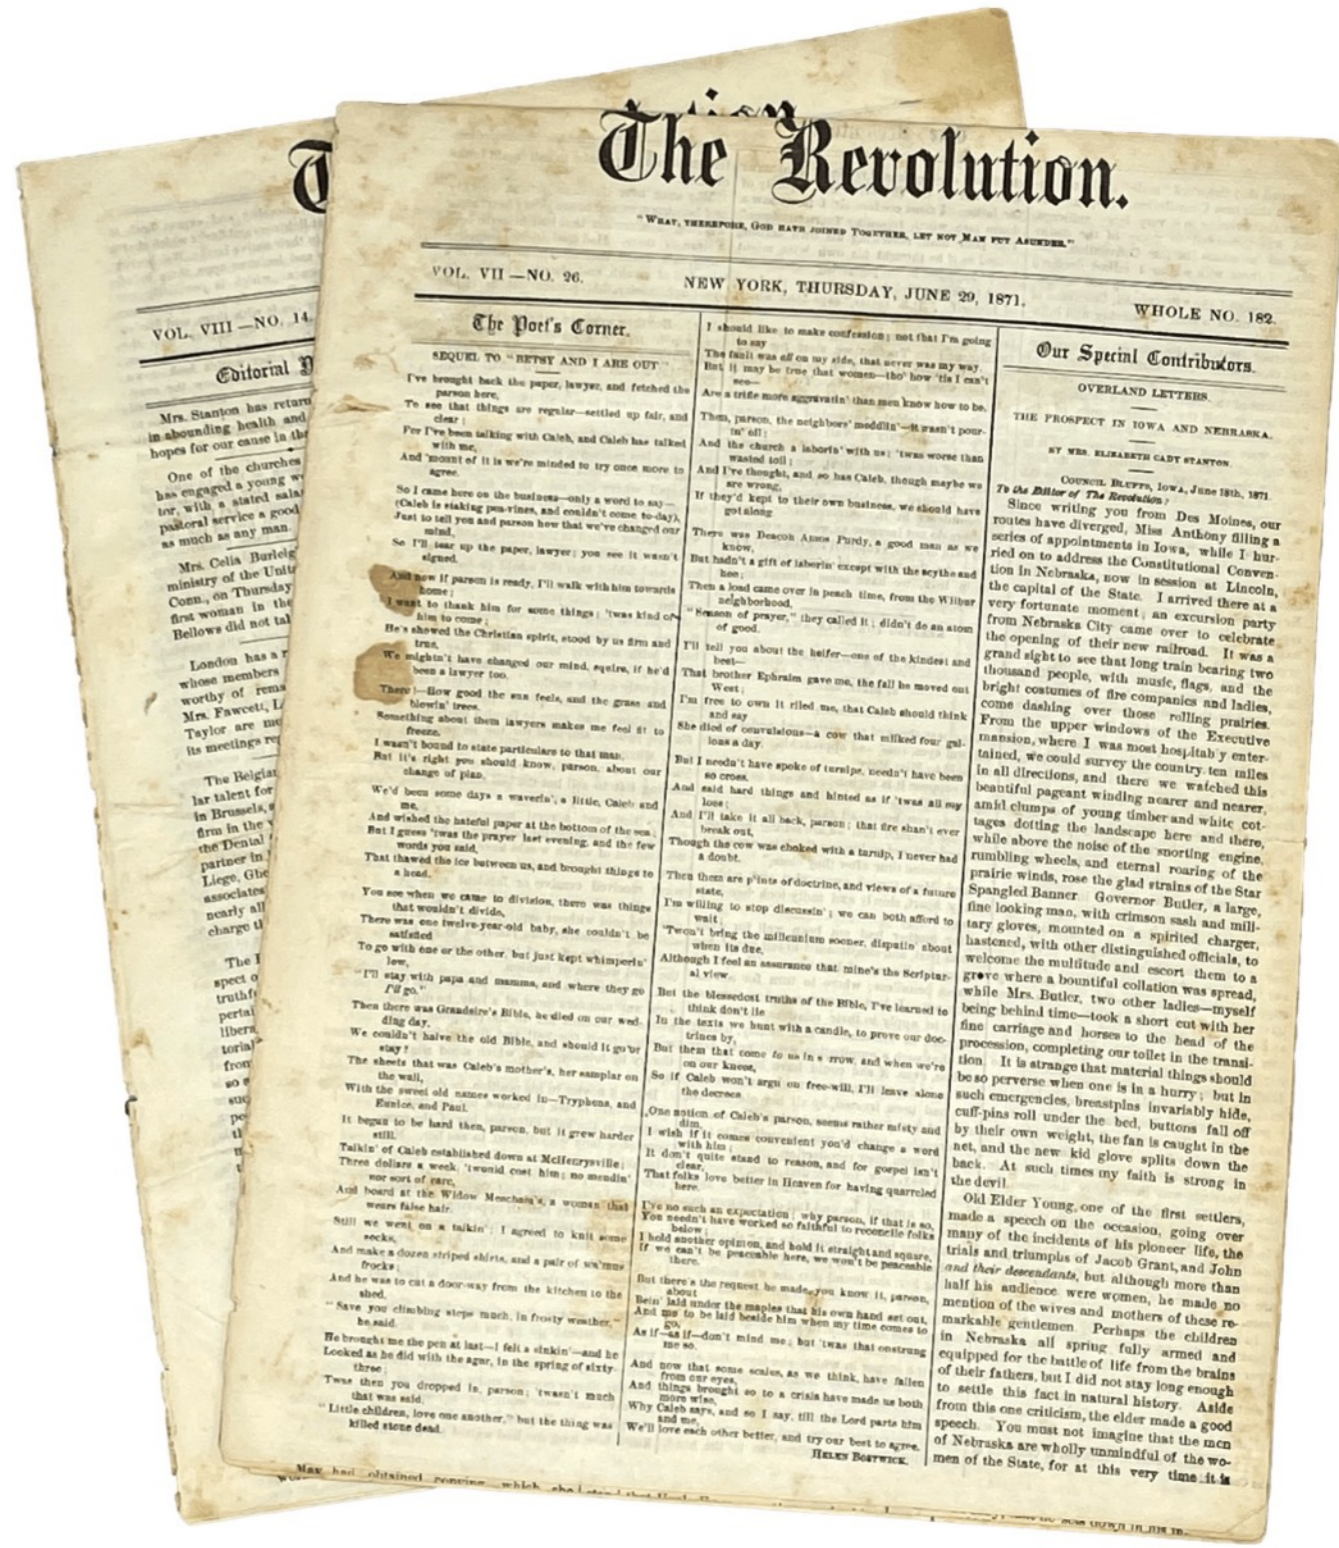 The Revolution.
"WHAT, THEREFORE, GOD HATH JOINED TOGETHER, LET NOT MAN PUT ASUNDER."
VOL. VII —NO. 26.
NEW YORK, THURSDAY, JUNE 29, 1871.
WHOLE NO. 182.
The Poet's Corner.
SEQUEL TO "BETSY AND I ARE OUT"
I've brought back the paper, lawyer, and fetched the
parson here,
To see that things are regular—settled up fair, and
clear;
For I've been talking with Caleb, and Caleb has talked
with me,
And 'mount of it is we're minded to try once more to
agree.
So I came here on the business—only a word to say—
(Caleb is staking pea-vines, and couldn't come to-day),
Just to tell you and parson how that we've changed our
mind,
So I'll tear up the paper, lawyer; you see it wasn't
signed.
And now if parson is ready, I'll walk with him towards
home;
I want to thank him for some things; 'twas kind of
him to come;
He's showed the Christian spirit, stood by us firm and
true,
We mightn't have changed our mind, squire, if he'd
been a lawyer too.
There!—How good the sun feels, and the grass and
blowin' trees.
Something about them lawyers makes me feel fit to
freeze.
I wasn't bound to state particulars to that man,
But it's right you should know, parson, about our
change of plan.
We'd been some days a waverin', a little, Caleb and
me,
And wished the hateful paper at the bottom of the sea;
But I guess 'twas the prayer last evening, and the few
words you said,
That thawed the ice between us, and brought things to
a head.
You see when we came to division, there was things
that wouldn't divide,
There was one twelve-year-old baby, she couldn't be
satisfied
To go with one or the other, but just kept whimperin'
low,
"I'll stay with papa and mamma, and where they go
I'll go."
Then there was Grandsire's Bible, he died on our wed-
ding day,
We couldn't halve the old Bible, and should it go or
stay?
The sheets that was Caleb's mother's, her samplar on
the wall,
With the sweet old names worked in—Tryphena, and
Eunice, and Paul.
It began to be hard then, parson, but it grew harder
still.
Talkin' of Caleb established down at McHenrysville;
Three dollars a week, 'twould cost him; no mendin'
nor sort of care,
And board at the Widow Meacham's, a woman that
wears false hair.
Still we went on a talkin'; I agreed to knit some
socks,
And make a dozen striped shirts, and a pair of wa'mus
frocks;
And he was to cut a door-way from the kitchen to the
shed,
"Save you climbing steps much, in frosty weather,"
he said.
He brought me the pen at last—I felt a sinkin'—and he
Looked as he did with the agur, in the spring of sixty-
three;
Twas then you dropped in, parson; 'twasn't much
that was said,
"Little children, love one another," but the thing was
killed stone dead.
I should like to make confession; not that I'm going
to say
The fault was all on my side, that never was my way.
But it may be true that women—tho' how 'tis I can't
see—
Are a trifle more aggravatin' than men know how to be.
Then, parson, the neighbors' meddlin'—it wasn't pour-
in' oil;
And the church a laborin' with us; 'twas worse than
wasted toil;
And I've thought, and so has Caleb, though maybe we
are wrong,
If they'd kept to their own business, we should have
got along
There was Deacon Amos Purdy, a good man as we
know,
But hadn't a gift of laborin' except with the scythe and
hoe;
Then a load came over in peach time, from the Wilbur
neighborhood,
"Season of prayer," they called it; didn't do an atom
of good.
I'll tell you about the heifer—one of the kindest and
best—
That brother Ephraim gave me, the fall he moved out
West;
I'm free to own it riled me, that Caleb should think
and say
She died of convulsions—a cow that milked four gal-
lons a day.
But I needn't have spoke of turnips, needn't have been
so cross,
And said hard things and hinted as if 'twas all my
loss;
And I'll take it all back, parson; that fire shan't ever
break out,
Though the cow was choked with a turnip, I never had
a doubt.
Then them are p'ints of doctrine, and views of a future
state,
I'm willing to stop discussin'; we can both afford to
wait;
'Twon't bring the millenium sooner, disputin' about
when its due,
Although I feel an assurance that mine's the Scriptur-
al view.
But the blessedest truths of the Bible, I've learned to
think don't lie
In the texts we hunt with a candle, to prove our doc-
trines by,
But them that come to us in s rrow, and when we're
on our knees,
So if Caleb won't argu on free-will, I'll leave alone
the decrees
One notion of Caleb's parson, seems rather misty and
dim,
I wish if it comes convenient you'd change a word
with him;
It don't quite stand to reason, and for gospel isn't
clear,
That folks love better in Heaven for having quarreled
here.
I've no such an expectation; why parson, if that is so,
You needn't have worked so faithful to reconcile folks
below;
I hold another opinion, and hold it straight and square,
If we can't be peaceable here, we won't be peaceable
there.
But there's the request he made, you know it, parson,
about
Bein' laid under the maples that his own hand set out,
And me to be laid beside him when my time comes to
go,
As if—as if—don't mind me; but 'twas that onstrung
me so.
And now that some scales, as we think, have fallen
from our eyes,
And things brought so to a crisis have made us both
more wise,
Why Caleb says, and so I say, till the Lord parts him
and me,
We'll love each other better, and try our best to agree.
HELEN BOSTWICK.
Our Special Contributors.
OVERLAND LETTERS.
THE PROSPECT IN IOWA AND NEBRASKA.
BY MRS. ELIZABETH CADY STANTON.
COUNCIL BLUFFS, IOWA, June 18th, 1871.
To the Editor of The Revolution:
Since writing you from Des Moines, our
routes have diverged, Miss Anthony filling a
series of appointments in Iowa, while I hur-
ried on to address the Constitutional Conven-
tion in Nebraska, now in session at Lincoln,
the capital of the State. I arrived there at a
very fortunate moment; an excursion party
from Nebraska City came over to celebrate
the opening of their new railroad. It was a
grand sight to see that long train bearing two
thousand people, with music, flags, and the
bright costumes of fire companies and ladies,
come dashing over those rolling prairies.
From the upper windows of the Executive
mansion, where I was most hospitab'y enter-
tained, we could survey the country ten miles
in all directions, and there we watched this
beautiful pageant winding nearer and nearer,
amid clumps of young timber and white cot-
tages dotting the landscape here and there,
while above the noise of the snorting engine,
rumbling wheels, and eternal roaring of the
prairie winds, rose the glad strains of the Star
Spangled Banner Governor Butler, a large,
fine looking man, with crimson sash and mili-
tary gloves, mounted on a spirited charger,
hastened, with other distinguished officials, to
welcome the multitude and escort them to a
grove where a bountiful collation was spread,
while Mrs. Butler, two other ladies—myself
being behind time—took a short cut with her
fine carriage and horses to the head of the
procession, completing our toilet in the transi-
tion. It is strange that material things should
be so perverse when one is in a hurry; but in
such emergencies, breastpins invariably hide,
cuff-pins roll under the bed, buttons fall off
by their own weight, the fan is caught in the
net, and the new kid glove splits down the
back. At such times my faith is strong in
the devil.
Old Elder Young, one of the first settlers,
made a speech on the occasion, going over
many of the incidents of his pioneer life, the
trials and triumphs of Jacob Grant, and John
and their descendants, but although more than
half his audience were women, he made no
mention of the wives and mothers of these re-
markable gentlemen. Perhaps the children
in Nebraska all spring fully armed and
equipped for the battle of life from the brains
of their fathers, but I did not stay long enough
to settle this fact in natural history. Aside
from this one criticism, the elder made a good
speech. You must not imagine that the men
of Nebraska are wholly unmindful of the wo-
men of the State, for at this very time it is
VOL. VIII —NO. 14.
Editorial
Mrs. Stanton has return
in abounding health and
hopes for our cause in the
One of the churches
has engaged a young w
tor, with a stated salar
pastoral service a good
as much as any man.
Mrs. Celia Burleig
ministry of the Unita
Conn., on Thursday
first woman in the
Bellows did not tal
London has a r
whose members
worthy of rema
Mrs. Fawcett, L
Taylor are me
its meetings reg
The Belgian
lar talent for
in Brussels, a
firm in the
the Dental
partner in
Liege, Ghe
associates
nearly all
charge th
The
spect o
truthf
pertai
libera
torial
from
so
suc
pe